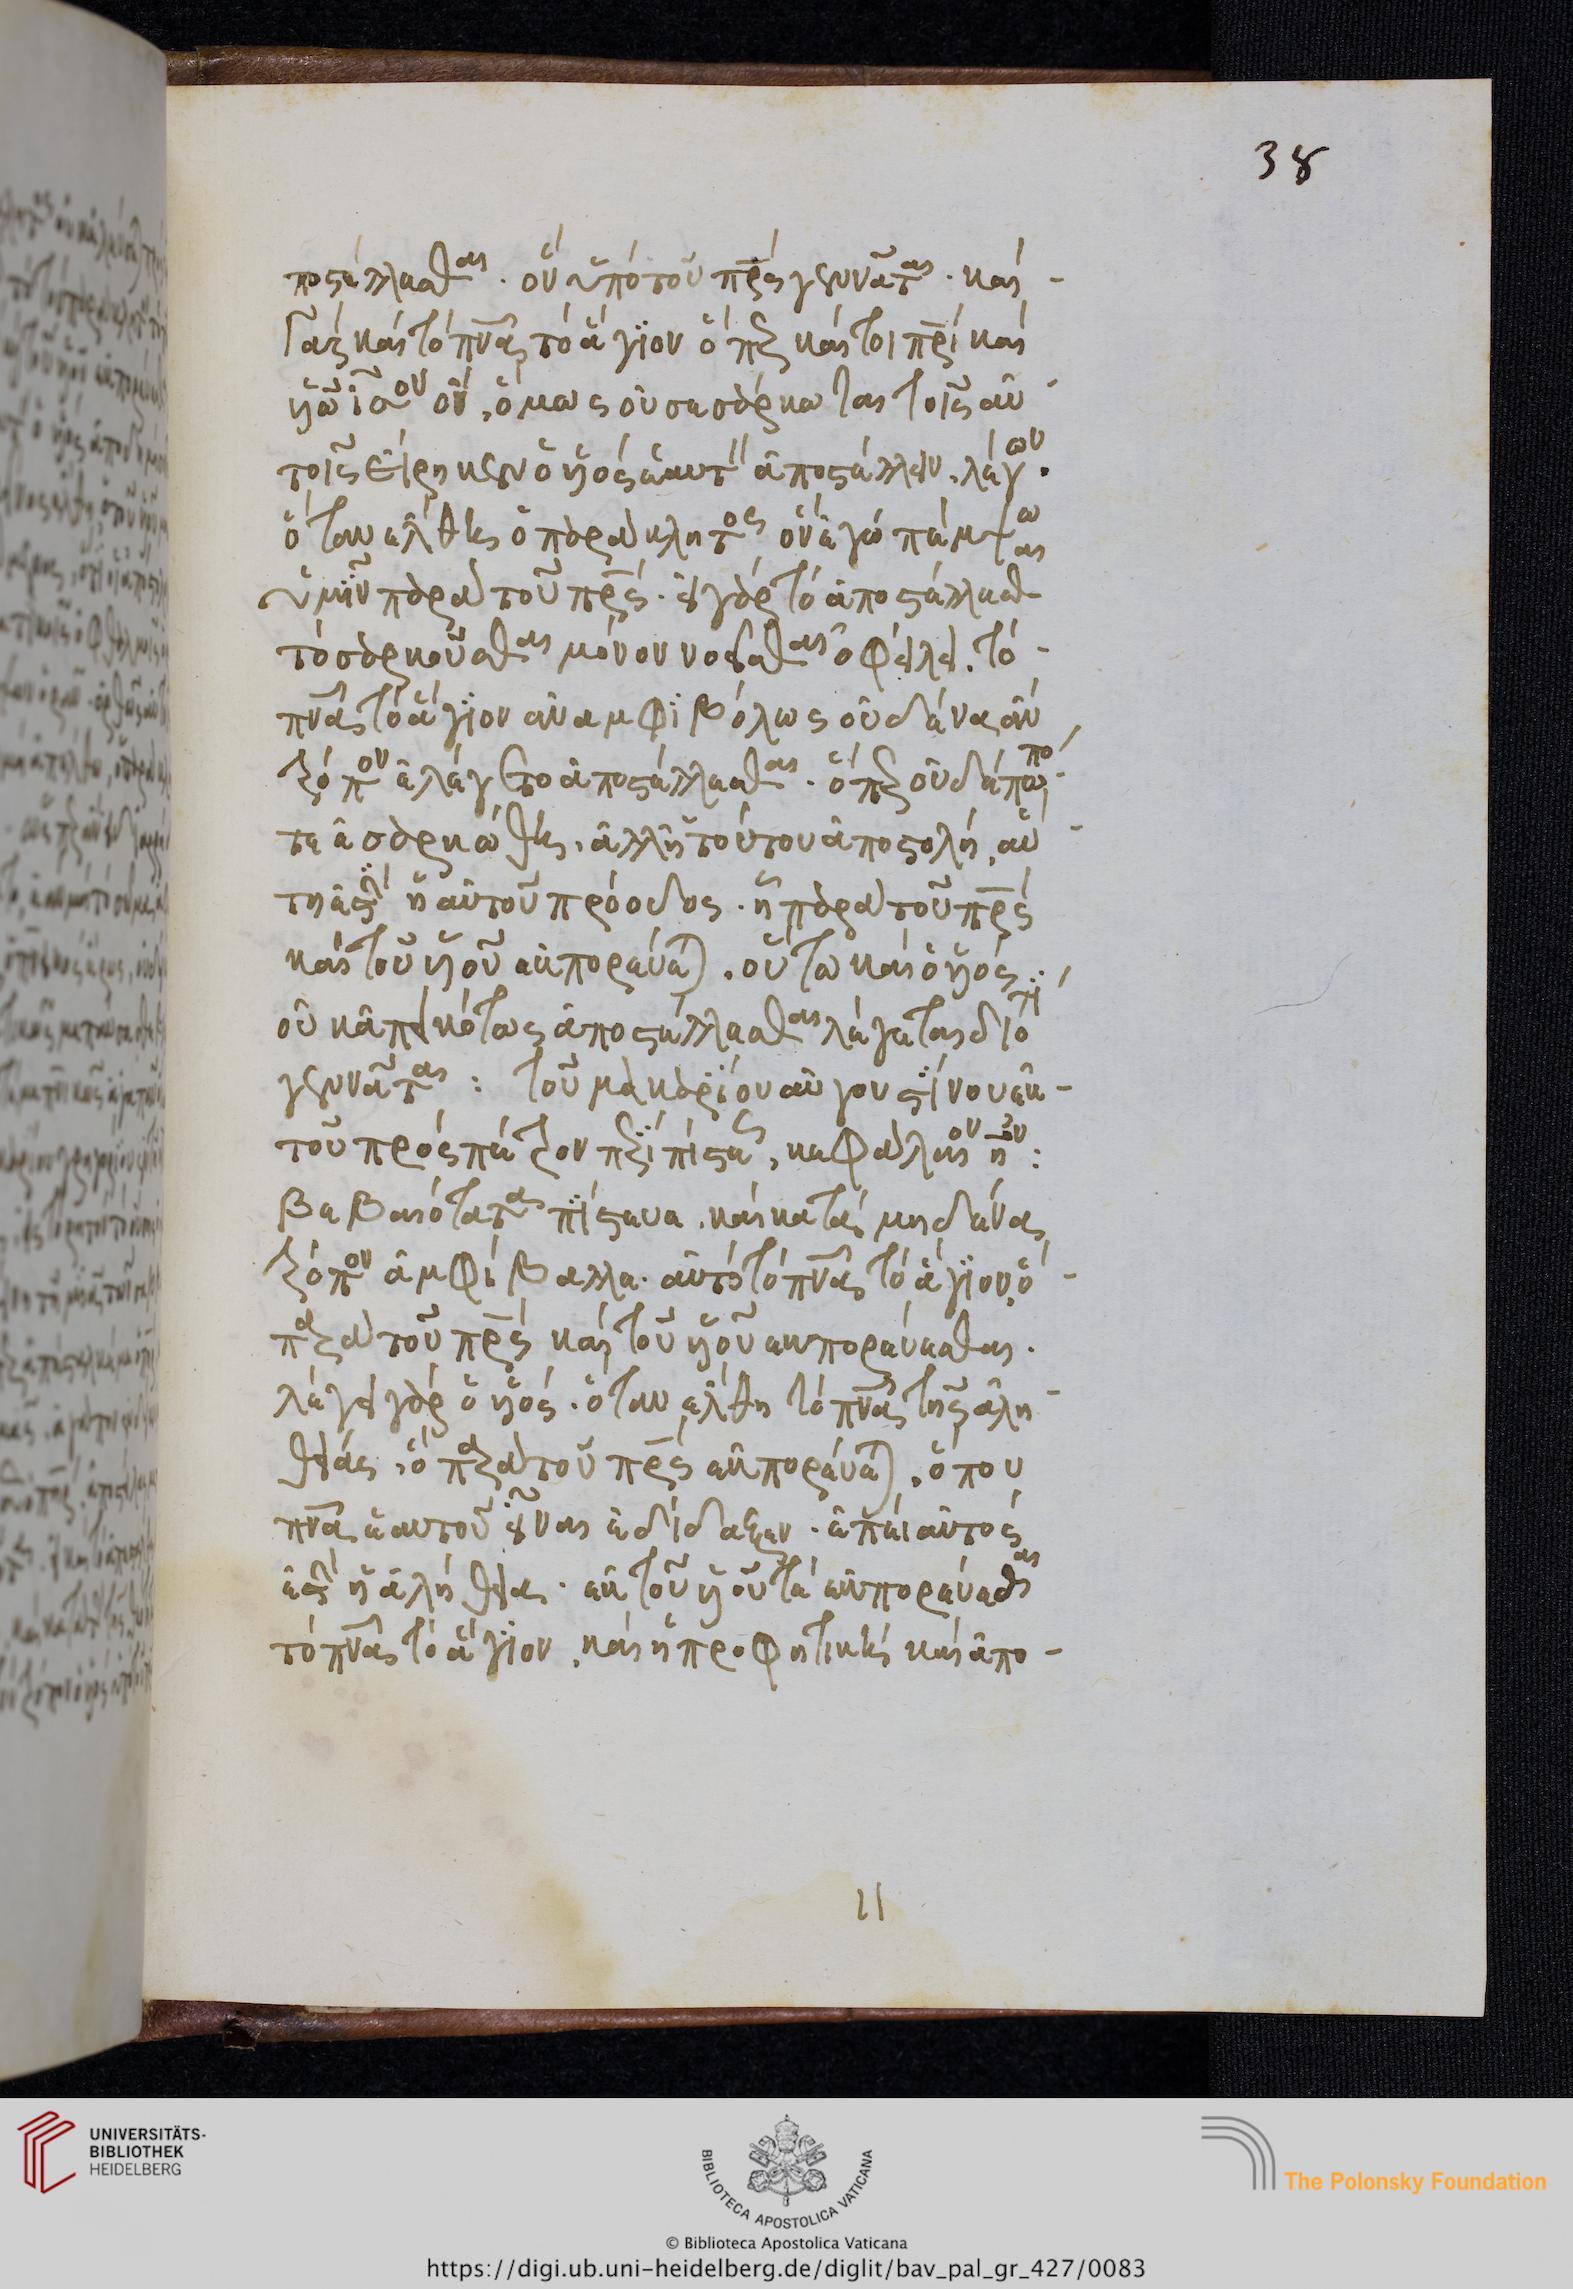 38
ποστέλλεσθαι. οὐχ ὑπὸ τοῦ πρς γεννᾶται. καὶ -
γὰρ καὶ τὸ πνα τὸ ἅγιον ὅπερ καὶ τῶ πρι καὶ
υἱῶ ἴσον ὂν, ὅμως οὐ σεσάρκωται τοῖς αὐ-
τοῖς εἴρηκεν ὁ υἱὸς ἑαυτ ἀποστέλλειν. λέγων.
ὅταν ἔλθη ὁ παράκλητος ὃν ἐγὼ πέμψω
ὑμῖν παρὰ τοῦ πρς. εἰ γὰρ τὸ ἀποστέλλεσθαι
τὸ σαρκοῦσθαι μόνον νοεῖσθαι ὀφείλει. τὸ -
πνα τὸ ἅγιον ἀναμφιβόλως οὐδένα ἂν
τρόπον ἐλέγετο ἀποστέλλεσθαι. ὅπερ οὐδέπώπο-
τε ἐσαρκώθη. ἀλλ' ἡ τούτου ἀποστολὴ, αὐ-
τή ἐστιν ἡ αὐτοῦ πρόοδος. ἣ παρὰ τοῦ πρς
καὶ τοῦ υἱοῦ ἐκπορεύεται. οὕτω καὶ ὁ υἱὸς
οὐκ ἀπεικότως ἀποστέλλεσθαι λέγεται διότι
γεννᾶται: τοῦ μακαρίου αὐγουστίνου ἐκ -
τοῦ πρὸς πέτρον περὶ πίστεως, κεφάλαιον :
βεβαιότατα πίστευε. καὶ κατὰ μηδένα
τρόπον ἀμφίβαλλε. αὐτὸ τὸ πνα τὸ ἅγιον, ὁ -
παρὰ τοῦ πρς καὶ τοῦ υἱοῦ ἐκπορεύεσθαι.
λέγει γὰρ ὁ υἱός. ὅταν ἔλθη τὸ πνα τῆς ἀλη-
θείας, ὃ παρὰ τοῦ πρς ἐκπορεύεται, ὅπου
πνα ἑαυτοῦ εἶναι ἐδίδαξεν. ἐπεὶ αὐτός
ἐστιν ἡ ἀλήθεια. ἐκ τοῦ υἱοῦ τε ἐκπορεύεσθαι
τὸ πνα τὸ ἅγιον, καὶ ἡ προφητικὴ καὶ ἀπο -
UNIVERSITÄTS-
BIBLIOTHEK
HEIDELBERG
BIBLIOTECA APOSTOLICA VATICANA
The Polonsky Foundation
© Biblioteca Apostolica Vaticana
https://digi.ub.uni-heidelberg.de/diglit/bav_pal_gr_427/0083